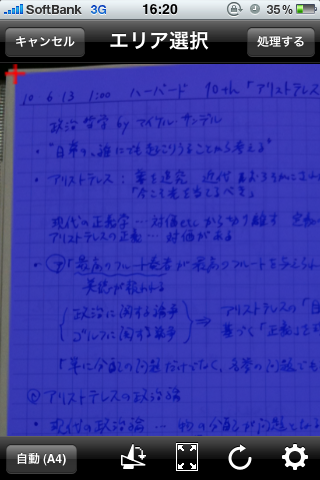 SoftBank 3G 16:20 35%
キャンセル エリア選択 処理する
10 6 13 1:00 ハーバード 10th 「アリストテレス
政治哲学 by マイケル・サンデル
・"日常の、誰にでも起こりうることから考える"
・アリストテレス:
現代の正義学 … 対価etcから切り離す
アリストテレスの正義 … 対価がある
「最高のフルート奏者が最高のフルートを与えられ
美徳が
政治に関する論争 ⇒ アリストテレスの「
ゴルフに関する論争 基づく「正義」
「単に分配の問題だけでなく、名誉の問題でも
② アリストテレスの政治論
・現代の政治論 … 物の分配が問題となる
自動 (A4)